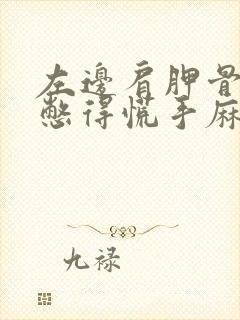 左邊肩胛骨
憋得慌手麻
九禄